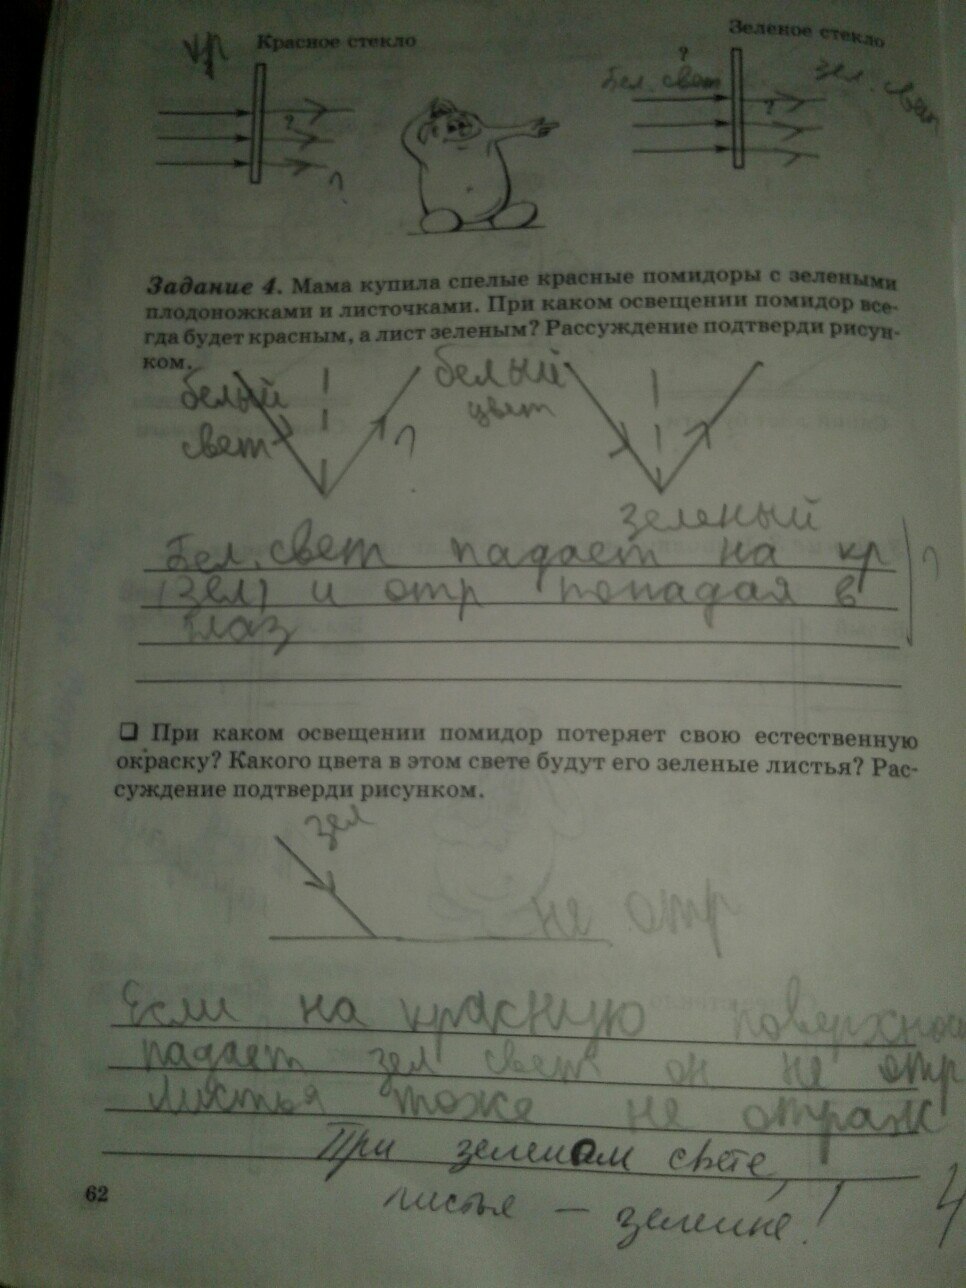 кр Красное стекло
Зеленое стекло
?
Бел. свет
зел.
?
?
?
Задание 4. Мама купила спелые красные помидоры с зелеными
плодоножками и листочками. При каком освещении помидор все-
гда будет красным, а лист зеленым? Рассуждение подтверди рисун-
ком.
белый
свет
?
белый
цвет
зеленый
Бел. свет падает на кр
(зел) и отр попадая в
глаз
?
❑ При каком освещении помидор потеряет свою естественную
окраску? Какого цвета в этом свете будут его зеленые листья? Рас-
суждение подтверди рисунком.
зел
не отр
Если на красную поверхнос
падает зел свет он не отр
Листья тоже не отраж
При зеленом свете,
листья – зеленые!
62
4